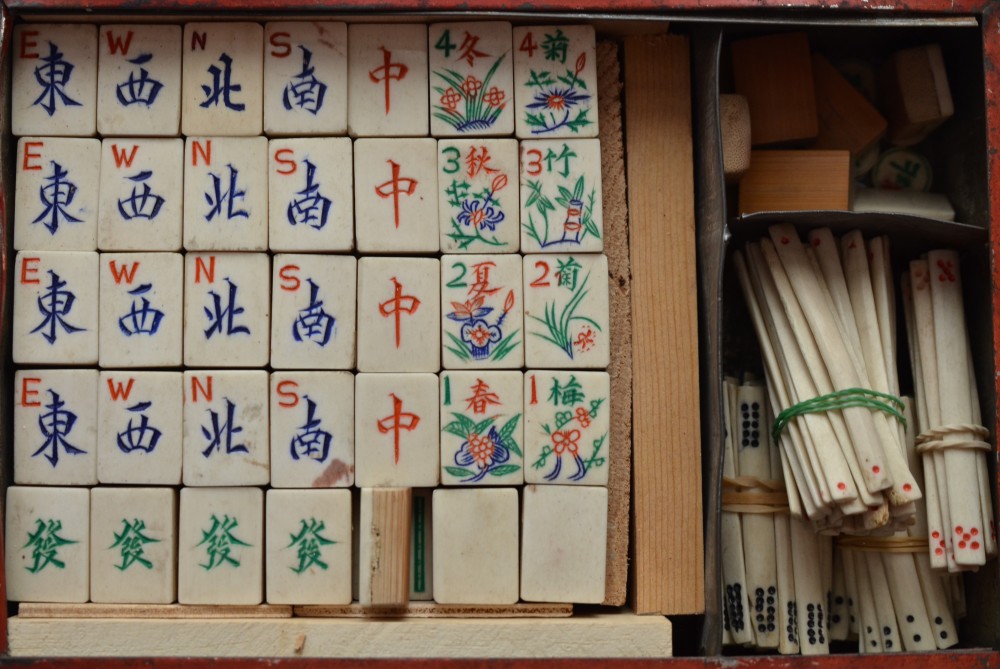 E 東 W 西 N 北 S 南 中 4 冬 4 菊
E 東 W 西 N 北 S 南 中 3 秋 3 竹
E 東 W 西 N 北 S 南 中 2 夏 2
E 東 W 西 N 北 S 南 中 1 春 1 梅
發 發 發 發